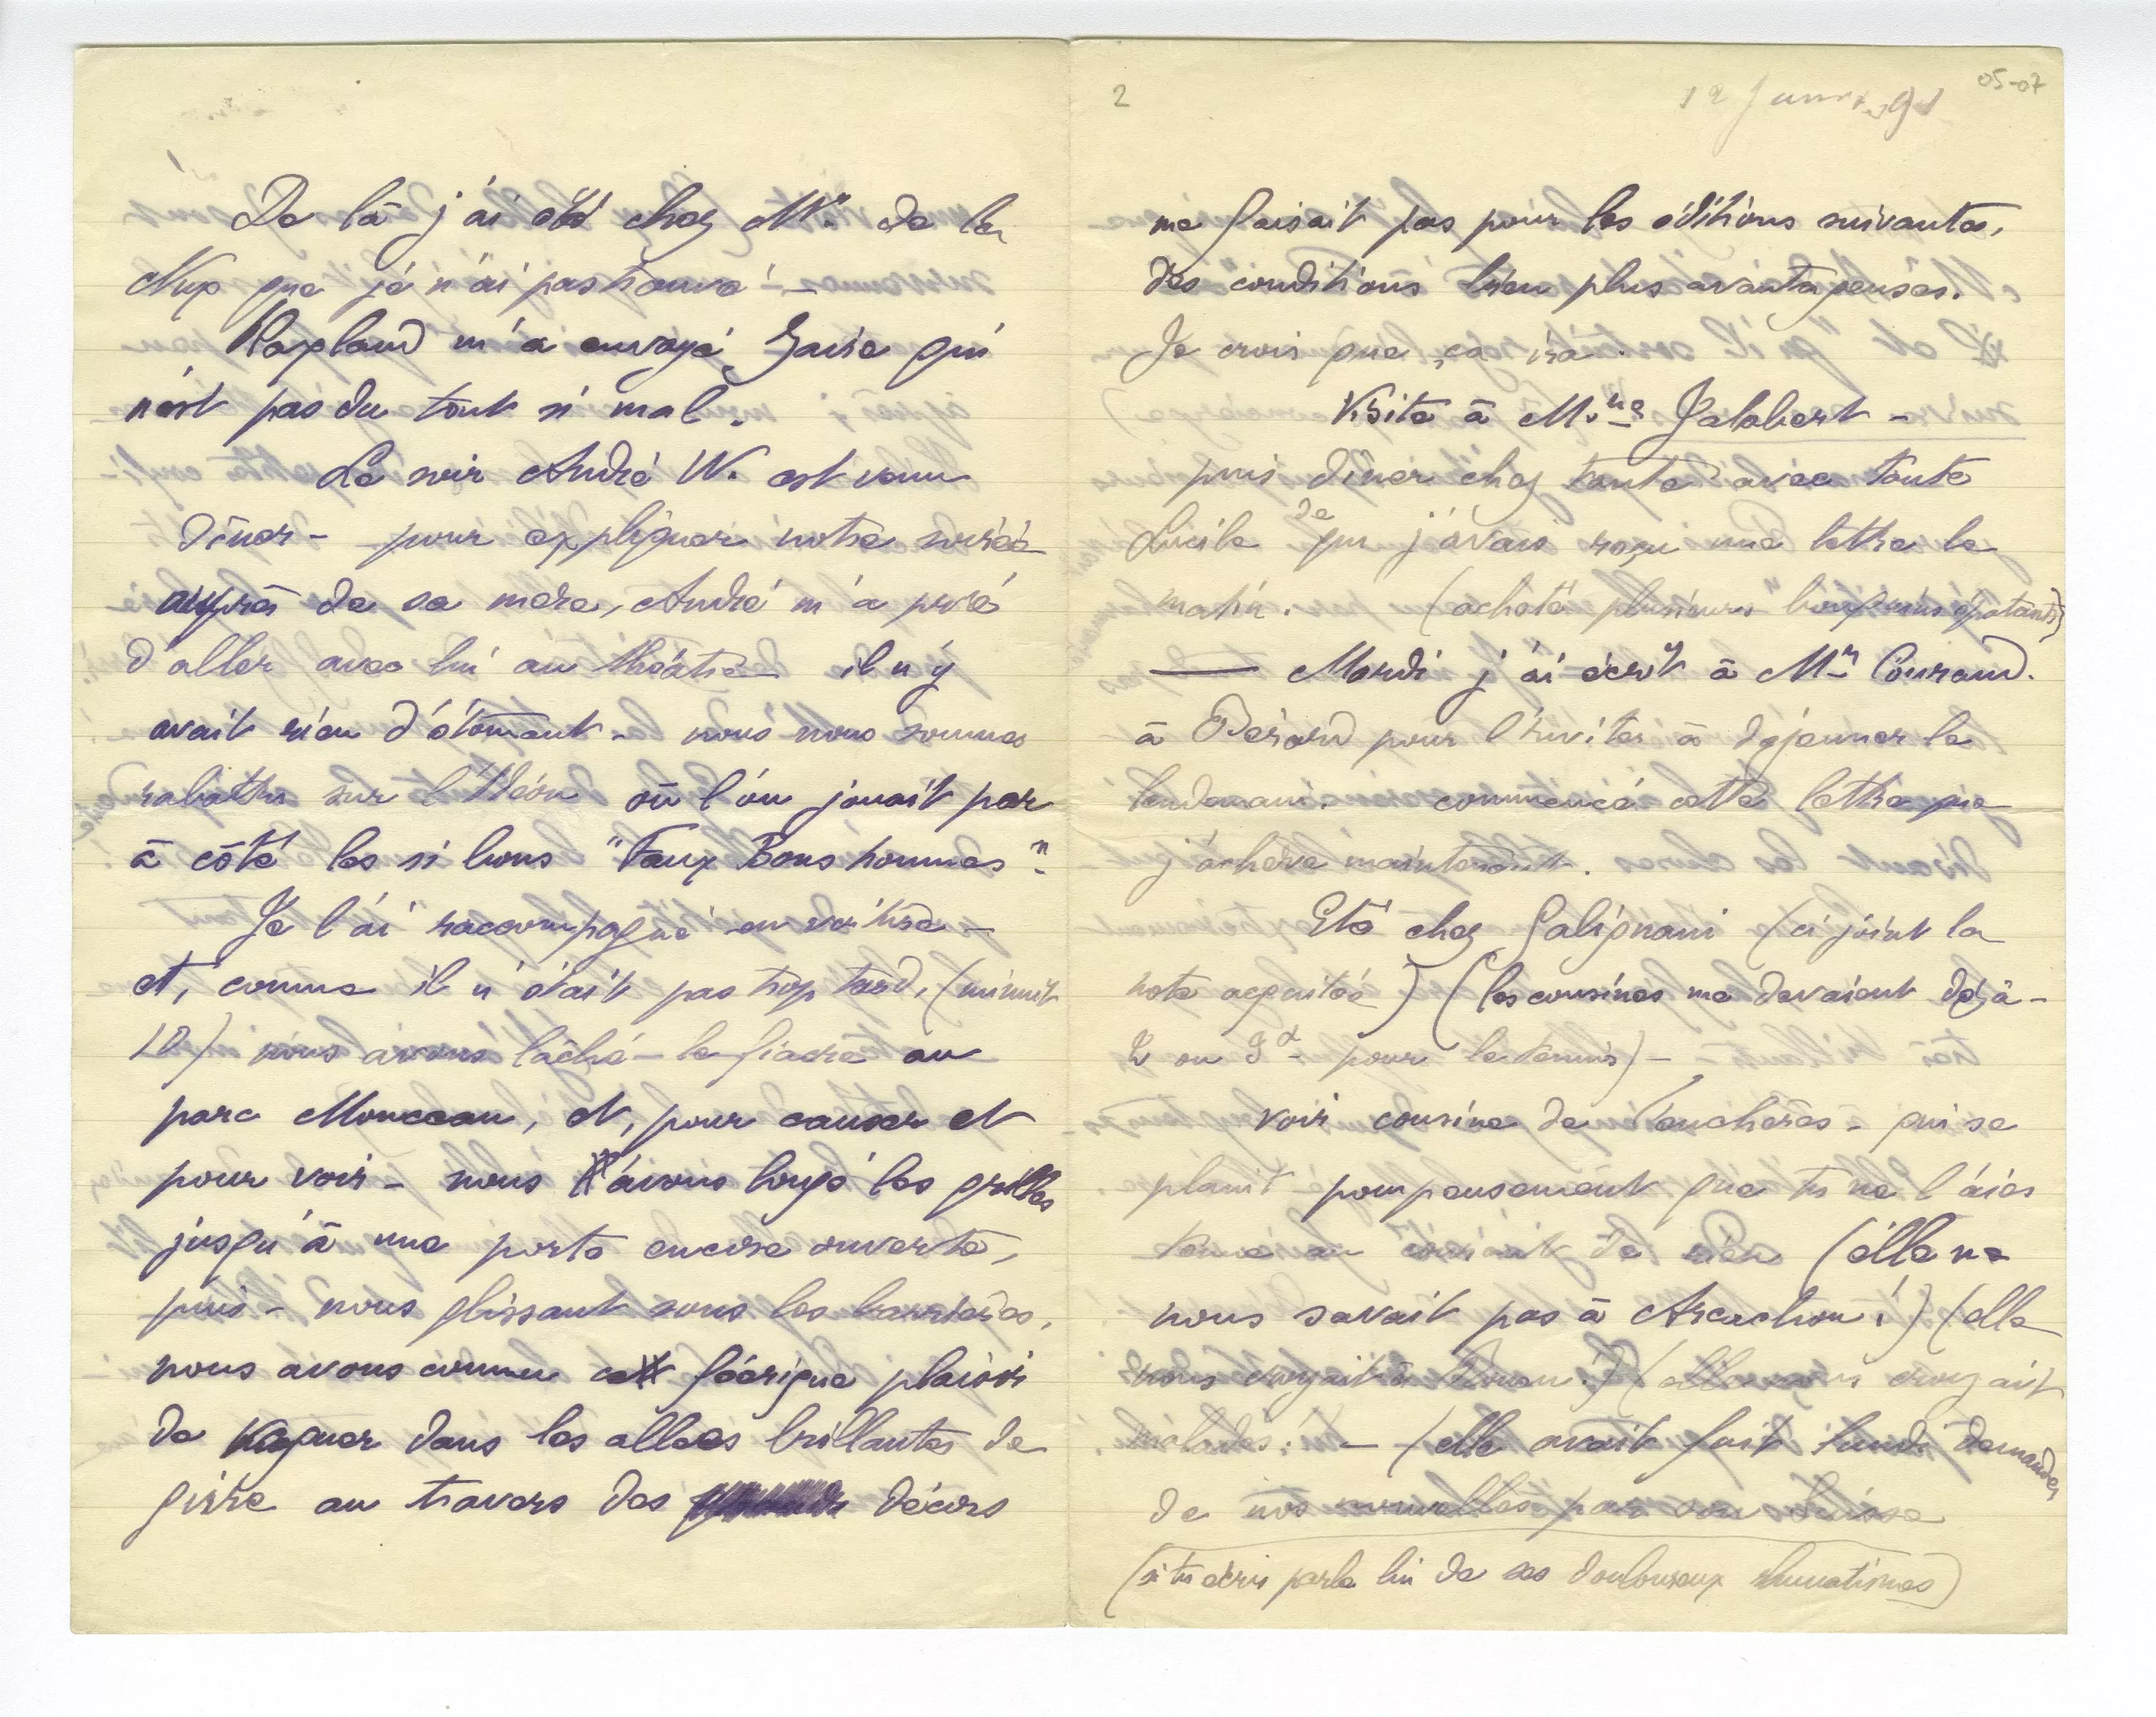 De là j'ai été chez Mr. de la
Nux que je n'ai pas trouvé –
m'a envoyé qui
n'est pas du tout si mal.
Le soir André W. est venu
dîner – pour expliquer notre soirée
auprès de sa mère, André m'a prié
d'aller avec lui au théâtre – il n'y
avait rien d'étonnant – nous nous sommes
rabattu sur l'Odéon où l'on jouait par
à côté les si bons "Faux Bons hommes".
Je l'ai raccompagné en voiture –
et, comme il n'était pas trop tard, (minuit
10) nous avons lâché le fiacre au
parc Monceau, et, pour causer et
pour voir – nous avons longé les grilles
jusqu'à une porte encore ouverte,
puis – nous glissant sous les barrières,
nous avons connu cet féérique plaisir
de vaguer dans les allées brillantes de
givre au travers des décors
2
05-07
12 91
me faisait pas pour les éditions suivantes,
des conditions bien plus avantageuses.
Je crois que ça ira.
Visite à Mme Jalabert –
puis dîner chez tante avec tante
Lucile de qui j'avais reçu une lettre le
matin. (acheté plusieurs bouquins épatants)
— Mardi j'ai écrit à Mr Couraud.
à Bérard pour l'inviter à déjeuner le
lendemain. commencé cette lettre que
j'achève maintenant.
Été chez Galignani (ci joint la
note acquitée) (les cousines me devaient déjà –
2 ou 3 pour le tennis) –
voir cousine de – qui se
plaint pompeusement que tu ne l'aies
tenue au courant de rien (elle ne
nous savait pas à Arcachon!) (elle
nous croyait à Rouen!) (elle nous croyait
malades! – (elle avait fait lundi demander
de nos nouvelles par son Suisse
(si tu écris parle lui de ses douloureux rhumatismes)